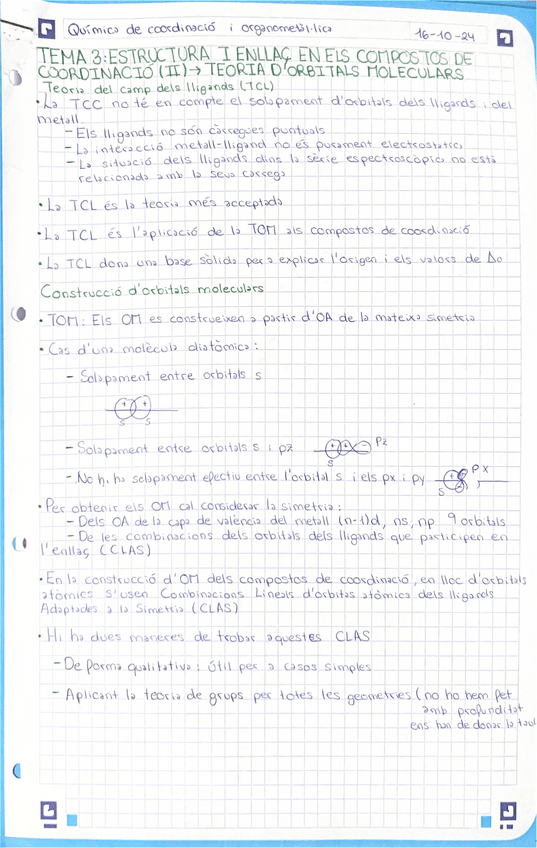 Química de coordinació i organometàl·lica 16-10-24
TEMA 3: ESTRUCTURA I ENLLAÇ EN ELS COMPOSTOS DE
COORDINACIÓ (II) → TEORIA D'ORBITALS MOLECULARS
Teoria del camp dels lligands (TCL)
• La TCC no té en compte el solapament d'orbitals dels lligands i del
metall.
– Els lligands no són càrregues puntuals
– La interacció metall-lligand no és purament electrostàtica
– La situació dels lligands dins la sèrie espectroscòpica no està
relacionada amb la seva càrrega
• La TCL és la teoria més acceptada
• La TCL és l'aplicació de la TOM als compostos de coordinació
• La TCL dona una base sòlida per a explicar l'origen i els valors de Δo
Construcció d'orbitals moleculars
• TOM: Els OM es construeixen a partir d'OA de la mateixa simetria
• Cas d'una molècula diatòmica:
– Solapament entre orbitals s
+ +
s s
– Solapament entre orbitals s i pz
pz
s
– No hi ha solapament efectiu entre l'orbital s i els px i py
px
s
• Per obtenir els OM cal considerar la simetria:
– Dels OA de la capa de valència del metall (n-1)d, ns, np 9 orbitals
– De les combinacions dels orbitals dels lligands que participen en
l'enllaç (CLAS)
• En la construcció d'OM dels compostos de coordinació, en lloc d'orbitals
atòmics s'usen Combinacions Lineals d'orbitas atòmics dels lligands
Adaptades a la Simetria (CLAS)
• Hi ha dues maneres de trobar aquestes CLAS
– De forma qualitativa: útil per a casos simples
– Aplicant la teoria de grups per totes les geometries (no ho hem fet
amb profunditat
ens han de donar la taul